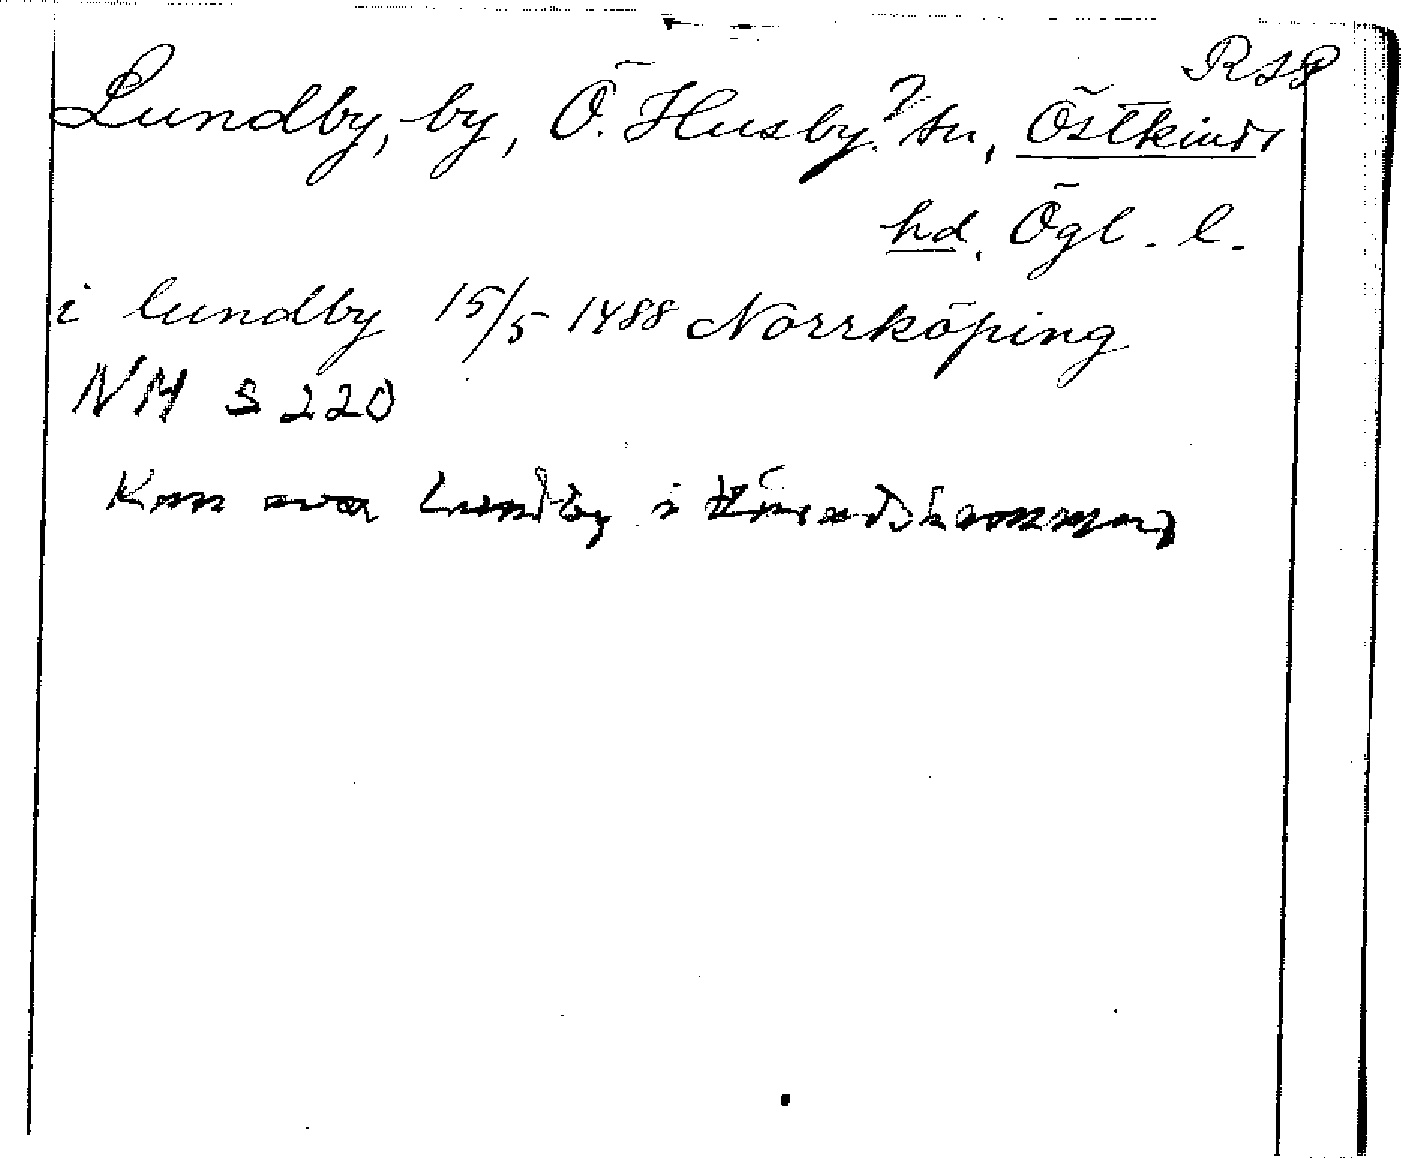 RSP
Lundby, by, Ö. Husby? sn, Östkinds
hd, Ögl. l.
i lundby 15/5 1488 Norrköping
NM S 220
Kan vara Lundby i